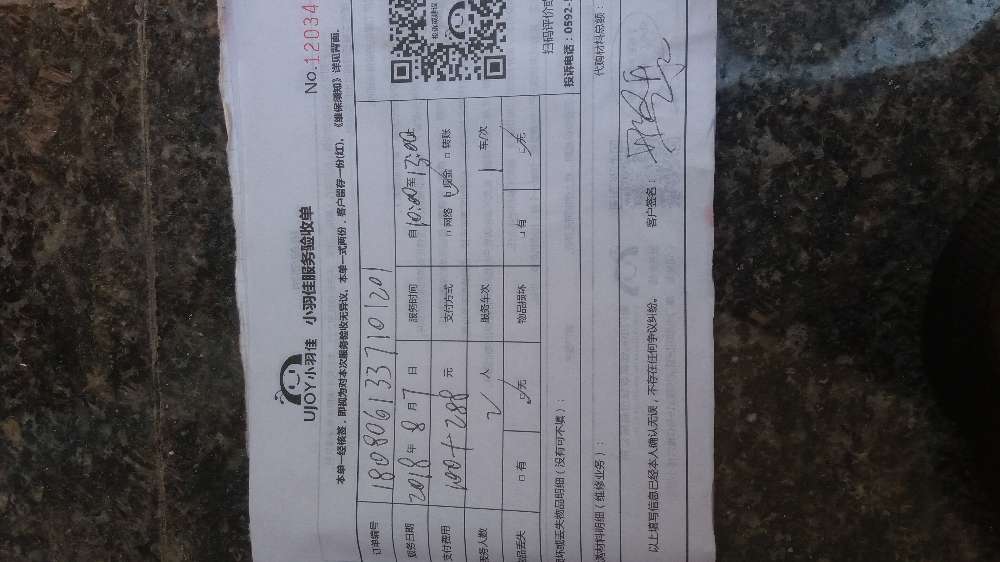 No.12034
UJOY小羽佳 小羽佳服务验收单
本单一经核签,即视为对本次服务验收无异议,本单一式两份,客户留存一份(红),《维保须知》详见背面.
订单编号 1808061337101201
服务日期 2018年8月7日 服务时间 自10:00至13:00止
支付费用 100+288元 支付方式 □网络 □现金 □转账
服务人数 2人 服务车次 1 车/次
物品丢失 □有 □无 物品损坏 □有 □无
扫码评价或
损坏或丢失物品明细(没有可不填):
投诉电话:0592-
材料明细(维修业务):
代购材料总额:
以上填写信息已经本人确认无误,不存在任何争议纠纷。 客户签名: